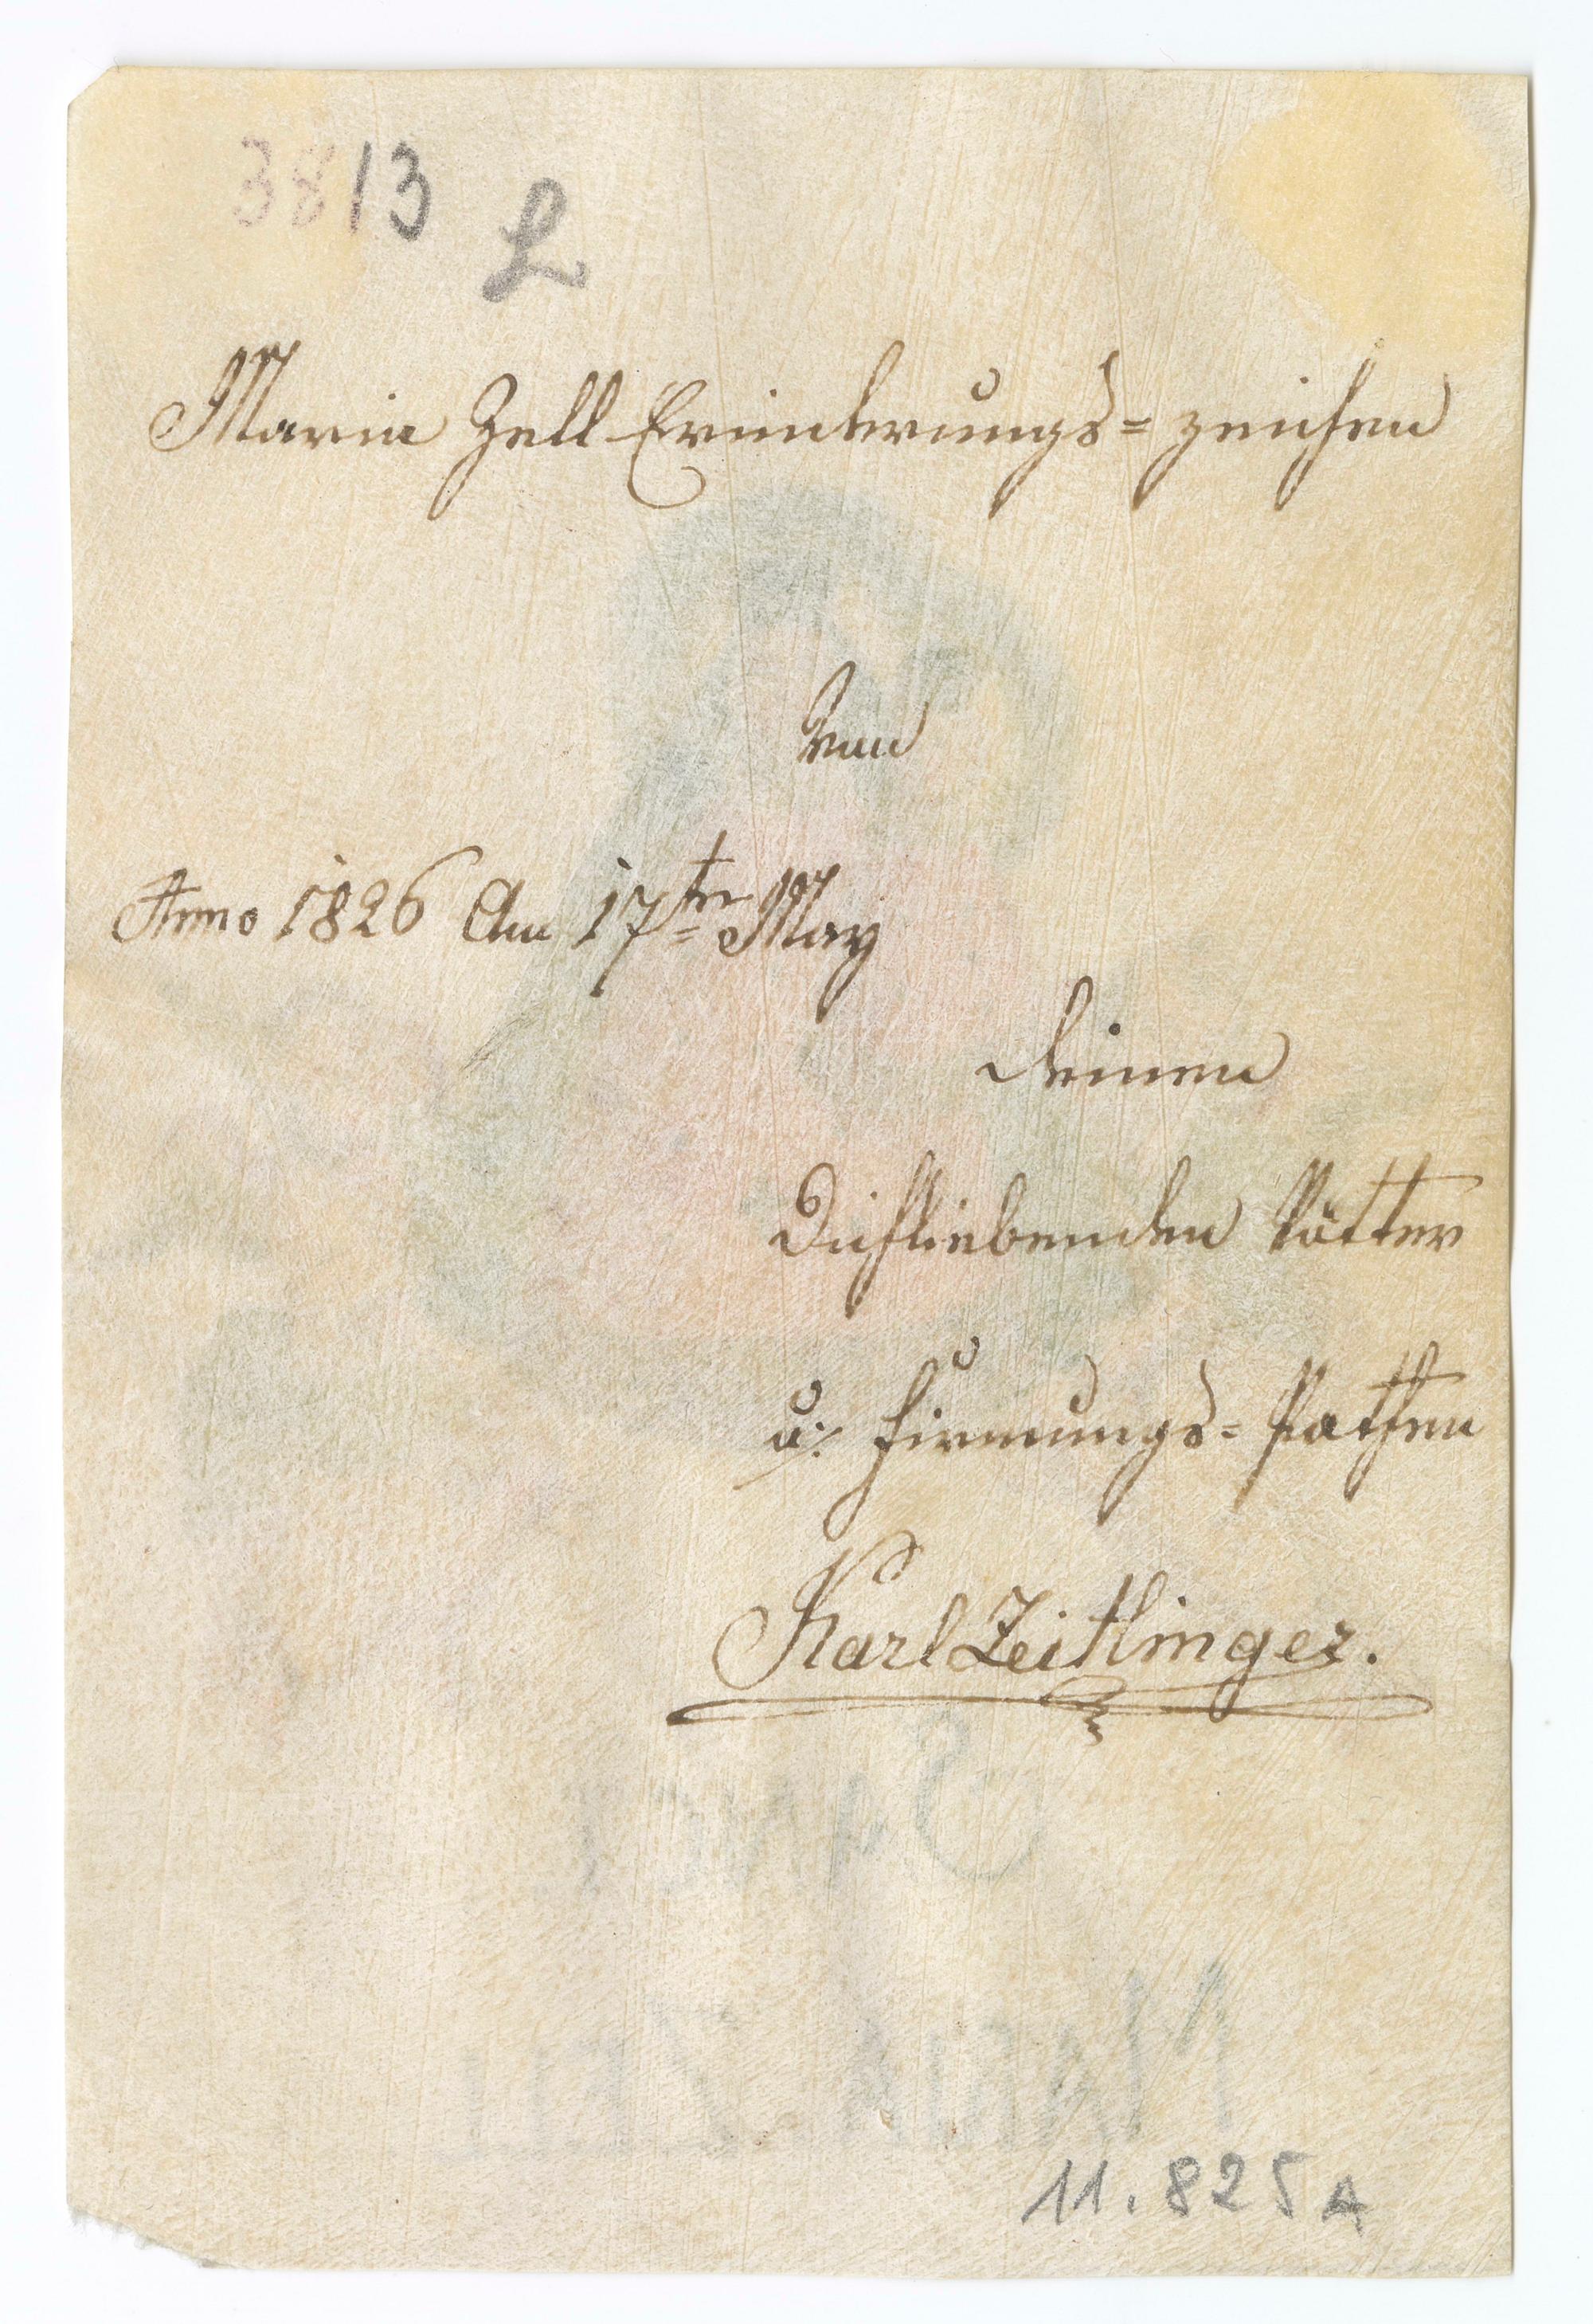 3813 L
Maria Zell Erinderungs=zeichen
Von
Anno 1826 Am 17ten May
deinen
Dichliebenden Vötter
u: Firmungs=Pathen
Karl Zeitlinger.
11.825A